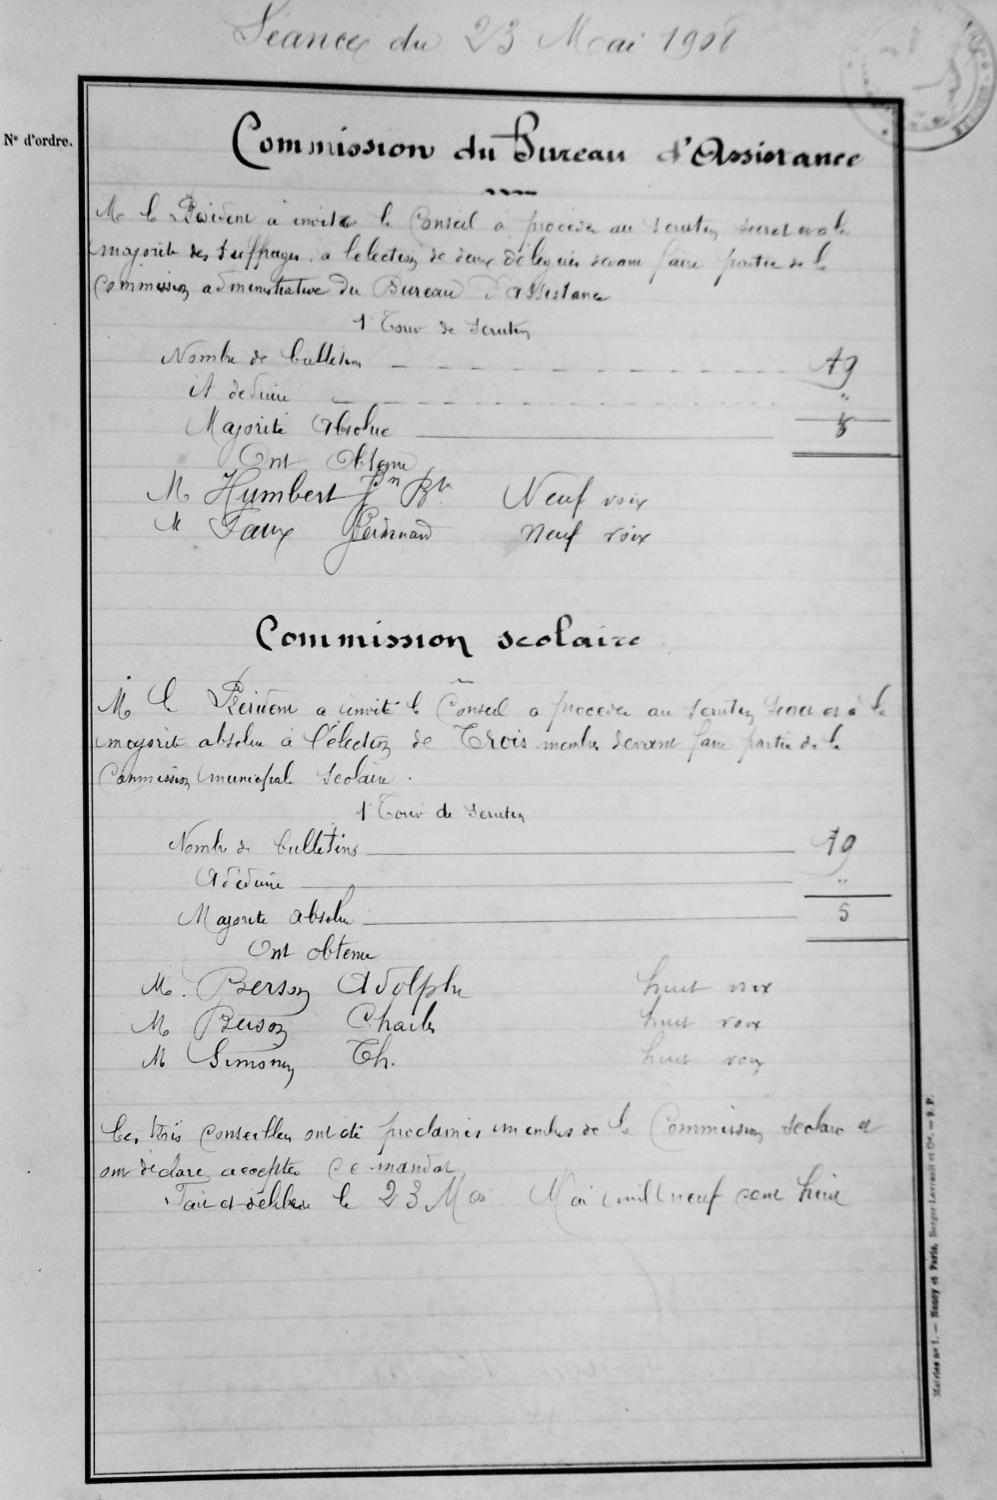 Séance du 23 Mai 1908
N° d'ordre.
Commission du Bureau d'Assistance
M le Président a invité le Conseil à procéder au scrutin secret et à la
majorité des suffrages à l'élection de deux délégués devant faire partie de la
Commission administrative du Bureau d'Assistance
1er Tour de scrutin
Nombre de bulletins 19
A déduire "
Majorité absolue
Ont obtenu
M Humbert Jn Bte Neuf voix
M Faux Ferdinand Neuf voix
Commission scolaire
M le Président a invité le Conseil à procéder au scrutin secret et à la
majorité absolue à l'élection de Trois membres devant faire partie de la
Commission municipale scolaire.
1er Tour de scrutin
Nombre de bulletins 19
A déduire "
Majorité absolue 5
Ont obtenu
M. Berson Adolphe huit voix
M Berson Charles huit voix
M Simonin Th. huit voix
Ces trois conseillers ont été proclamés membres de la Commission scolaire et
ont déclaré accepter ce mandat
Fait et délibéré le 23 Mai Mai mil neuf cent huit
Mairies n° 1. — Nancy et Paris, Berger-Levrault et Cie. — S. P.